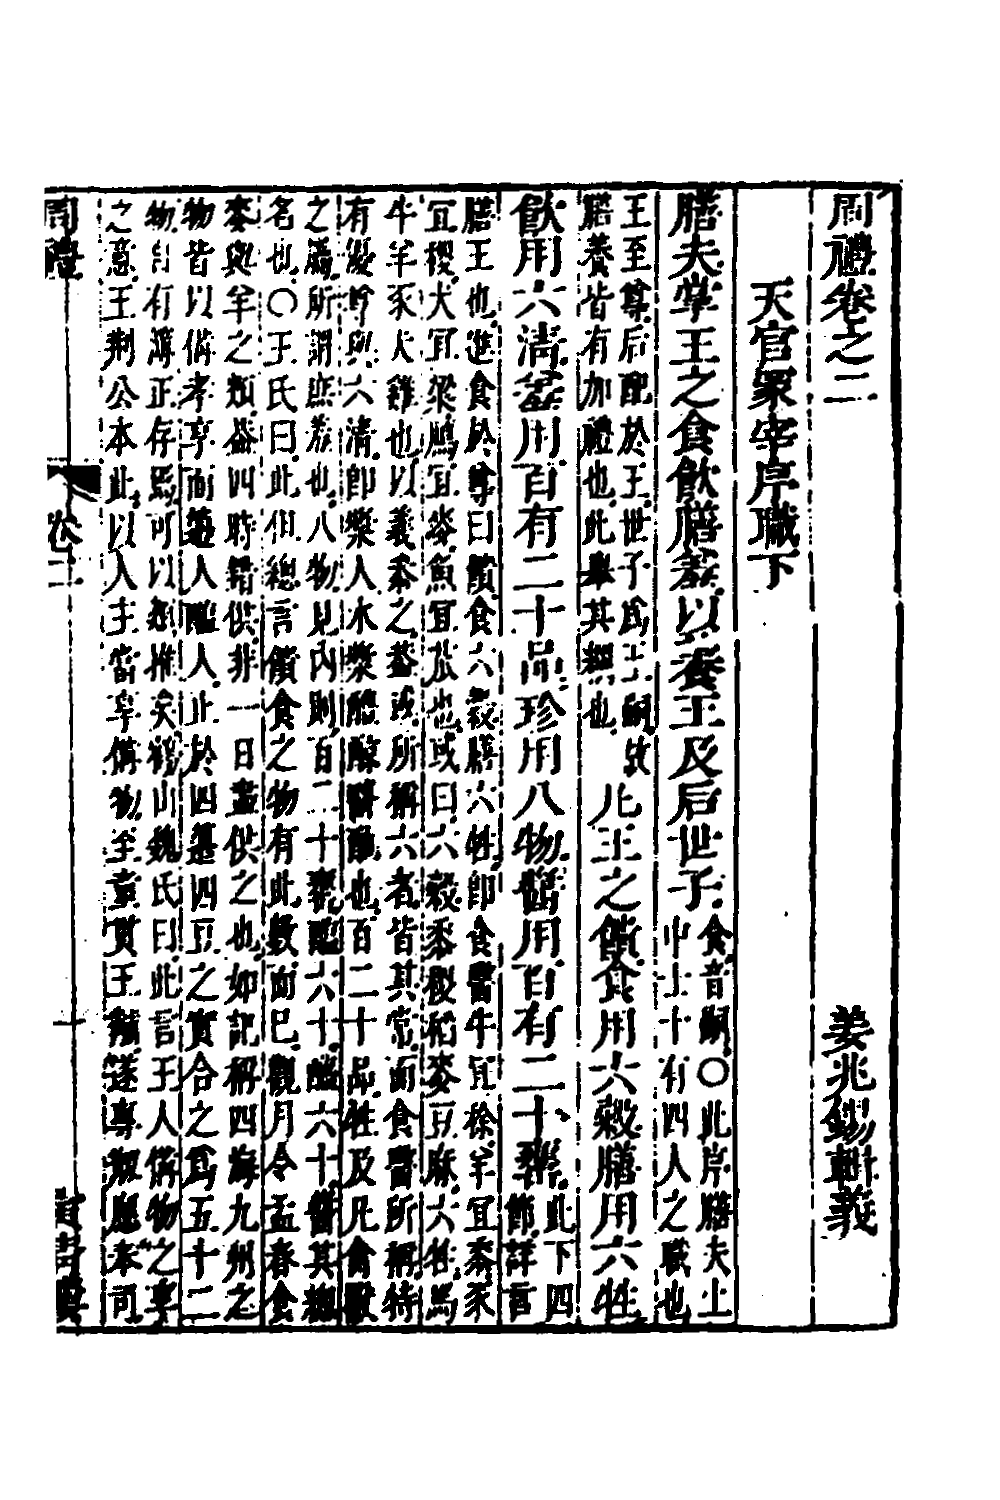 周禮卷之二　姜兆錫輯義
天官冢宰序職下
膳夫掌王之食飲膳羞以養王及后世子
食音嗣○此序膳夫上
中士十有四人之職也
王至尊后配於王世子爲王嗣故
膳養皆有加禮也此舉其槩也
凡王之饋食用六穀膳用六牲
飲用六清羞用百有二十品珍用八物醬用百有二十罋
此下四
節詳言
膳王也進食於尊曰饋食六穀膳六牲卽食醫牛宜稌羊宜黍豕
宜稷犬宜粱鴈宜麥魚宜苽也或曰六穀黍稷稻麥豆麻六牲馬
牛羊豕犬雞也以義之蓋或所稱六者皆其常而食醫所稱特
有與六清卽漿人水漿醴醇醫酏也百二十品牲及凡禽獸
之屬所謂庶羞也八物見內則百二十罋醢六十醯六十醬其總
名也○王氏曰此但總言饋食之物有此數而已觀月令孟春食
麥與羊之類葢四時錯供非一日盡供之也如記稱四海九州之
物皆以備孝享而籩人醢人止於四籩四豆之實合之爲五十二
物自有簿正存焉可以類推矣鶴山魏氏曰此言王人備物之享
之意王荆公本此以人主當享備物至童貫王黼遂專應奉司
周禮
卷二
一